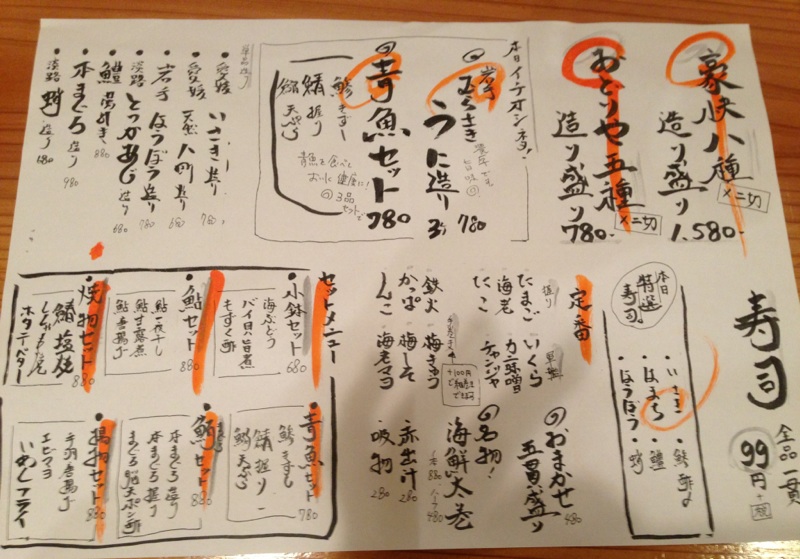 豪快八種
造り盛り
×二切
1.580-
おどりや五種
造り盛り
×二切
780-
本日イチオシネタ!
岩手
むらさき
うに造り
780
青魚セット
780
鯵きずし
鯖握り
鰯天ぷら
青魚を食べて
おいしく健康に!
3品
セットで
単品造り
愛媛 いさき造り 780
愛媛 天然 八同造り 680
岩手 ほうぼう造り 780
淡路 とっかあじ造り 680
鱧湯引き 880
本まぐろ造り 980
淡路 蛸造り 680
寿司
全品一貫
99円+税
本日
特選
寿司。
いさき
はまち
ほうぼう
鱧
蛸
定番
握り
たまご
海老
たこ
軍艦
いくら
カニ味噌
チャンジャ
鉄火
かっぱ
しんこ
梅きゅう
梅しそ
海老マヨ
+100円
おまかせ
五貫盛り
480
名物!
海鮮太巻
一本 880
ハーフ 480
赤出汁
280
吸物
280
セットメニュー
小鉢セット
680
海ぶどう
バイ貝旨煮
もずく酢
鮎セット
880
鮎一夜干し
鮎甘露煮
鮎唐揚げ
焼物セット
880
鯖塩焼
ホタテバター
青魚セット
780
鯵きずし
鯖握り
鰯天ぷら
鮪セット
880
本まぐろ造り
本まぐろ握り
まぐろ脳天ポン酢
揚物セット
880
手羽唐揚げ
エビマヨ
いわしフライ